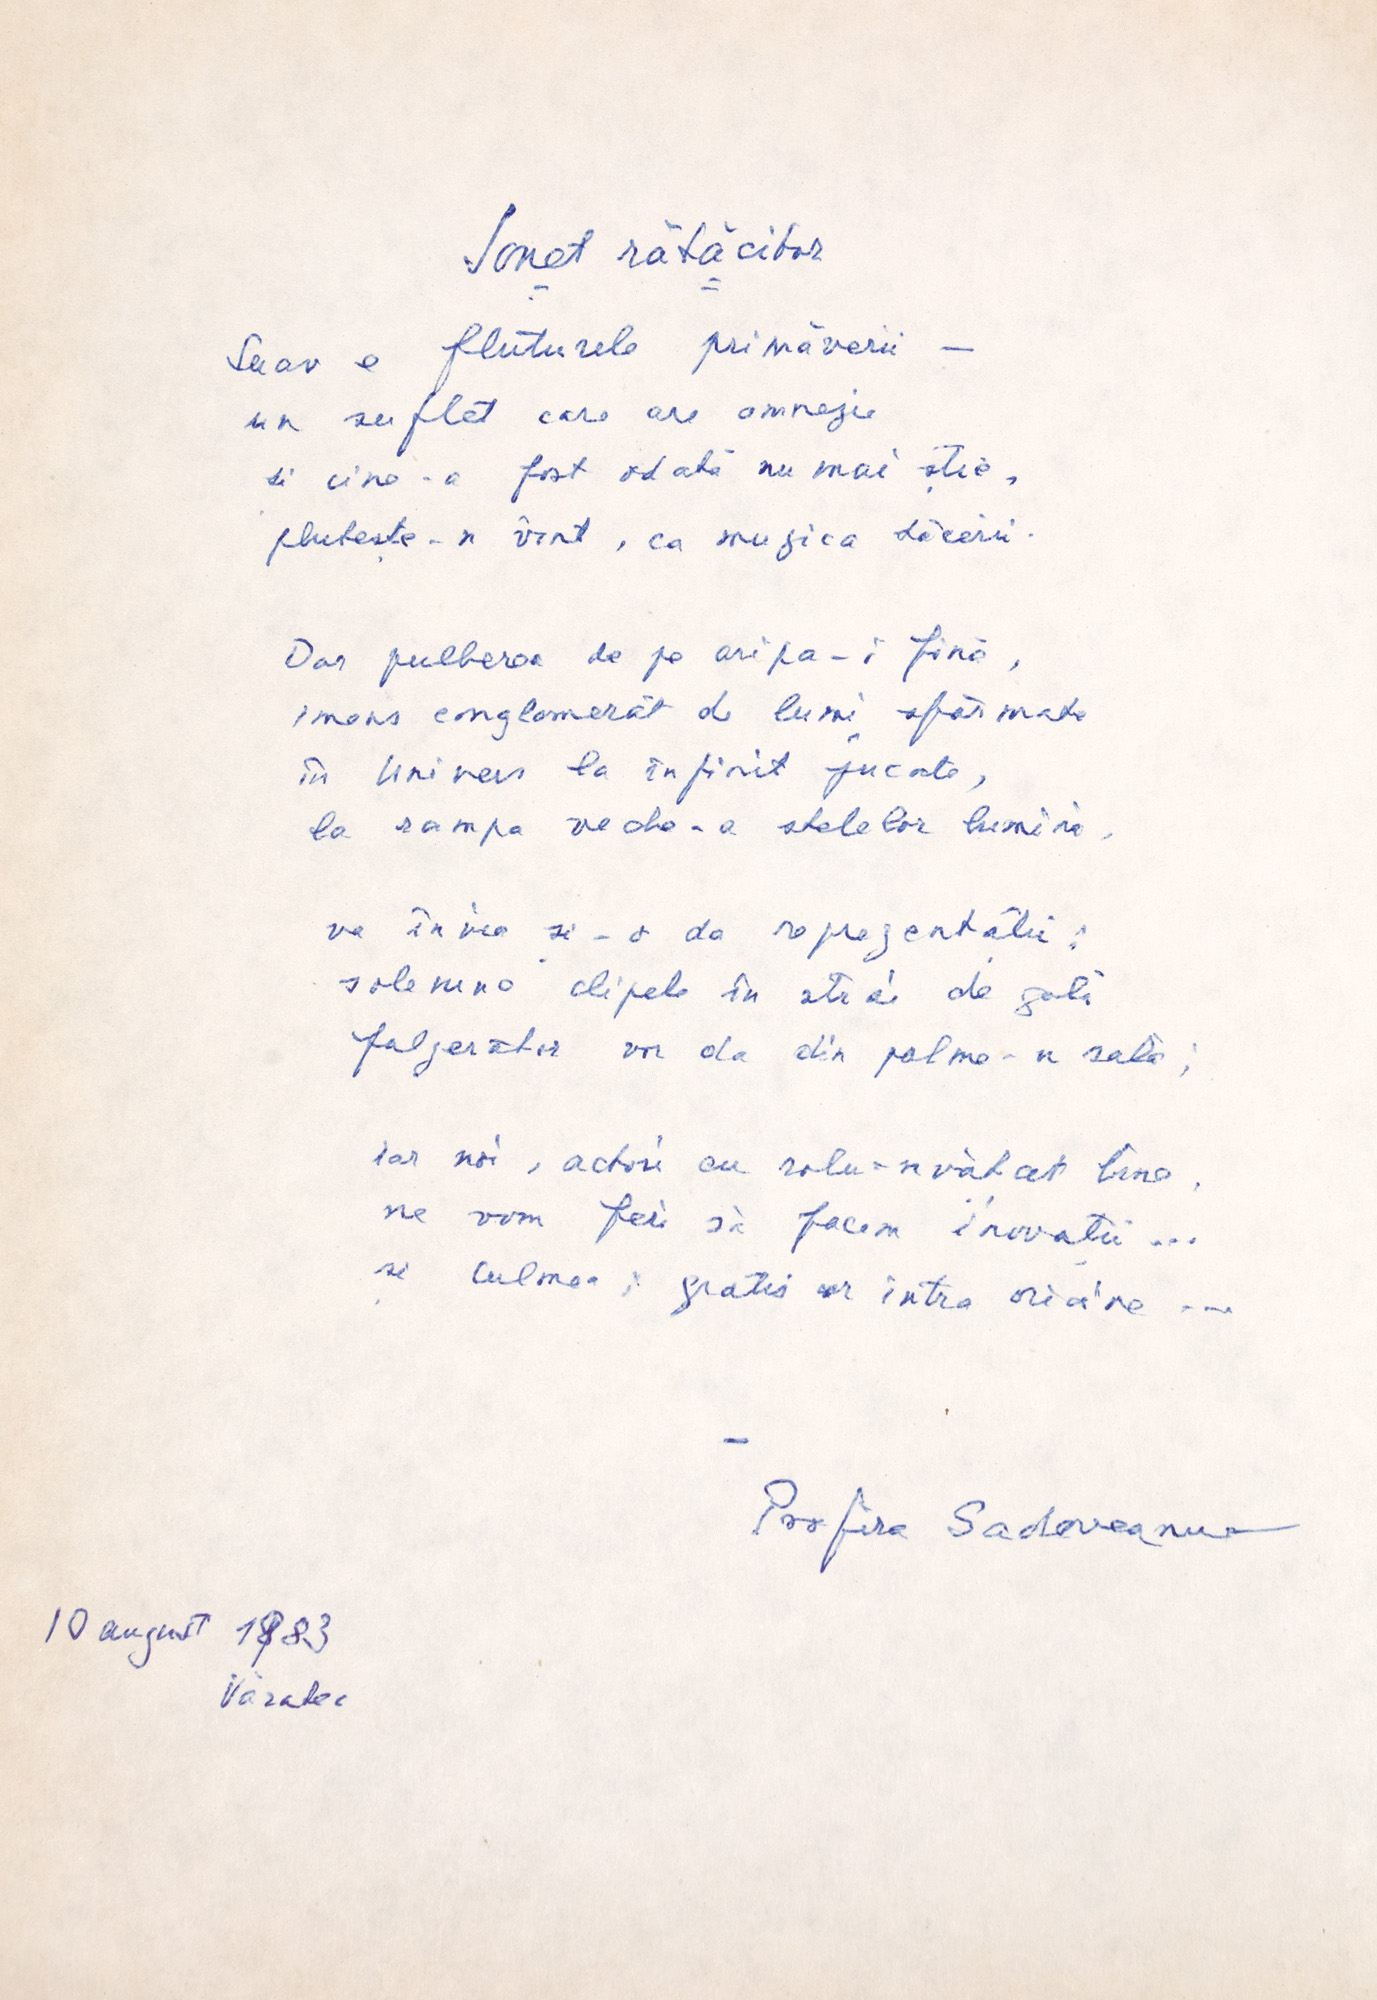 Sonet rătăcitor
Suav e fluturele primăverii —
un suflet care are amnezie
și cine-a fost odată nu mai știe,
plutește-n vînt, ca muzica tăcerii.
Dar pulberea de pe aripa-i fină,
imens conglomerat de lumi sfărmate
în Univers la infinit jucate,
la rampa veche-a stelelor lumină,
va învia și-o da reprezentații;
solemne clipele în strai de gală
fulgerător vor da din palme-n sală;
iar noi, actori cu rolu-nvățat bine,
ne vom feri să facem inovații ...
și culmea; gratis or intra oricine ...
—
Profira Sadoveanu
10 august 1983
Văratec